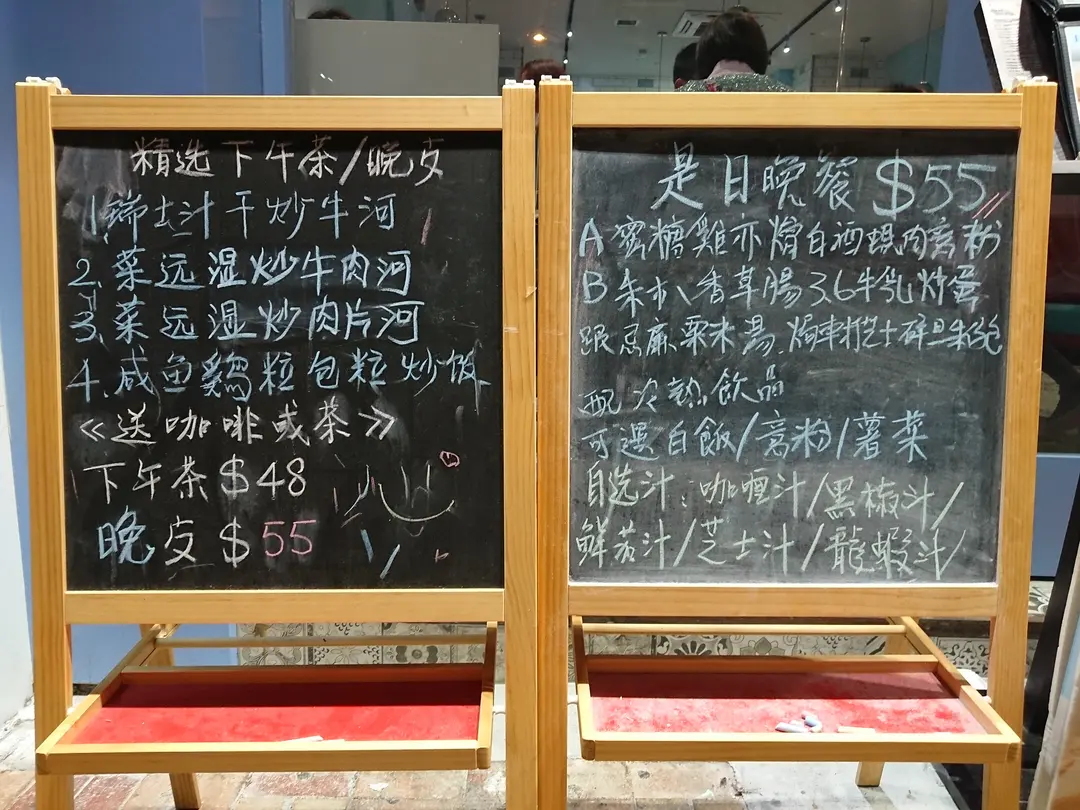 精选下午茶/晚支
1.瑞士汁干炒牛河
2.菜远湿炒牛肉河
3.菜远湿炒肉片河
4.咸鱼鸡粒包粒炒饭
≪送咖啡或茶≫
下午茶$48
晚支$55
是日晚餐$55
A蜜糖雞亦燴白酒蜆肉意粉
B 香草腸3.6牛乳炒蛋
跟忌廉粟米湯
配冷熱飲品
可選白飯/意粉/薯菜
自选汁:咖喱汁/黑椒汁/
鮮茄汁/芝士汁/龍蝦汁/